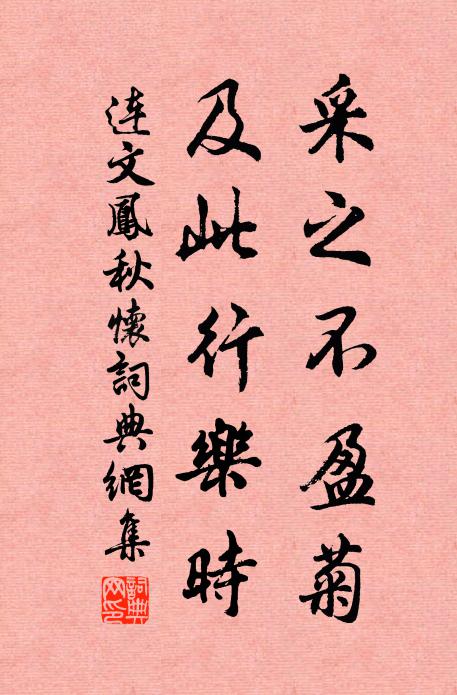 采之不盈菊
及此行樂時
連文鳳秋懷詞典網集
詞典
网印